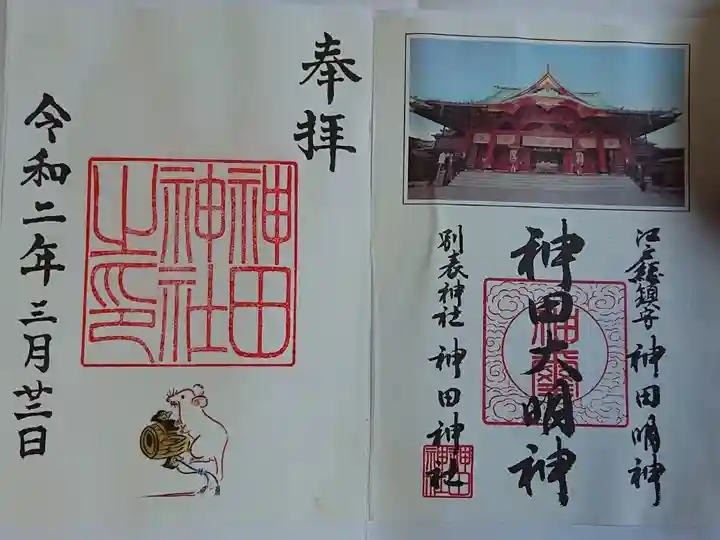 江戸総鎮守 神田明神
神田大明神
別表神社 神田神社
神田神社
奉拝
神田神社之印
令和二年三月廿三日